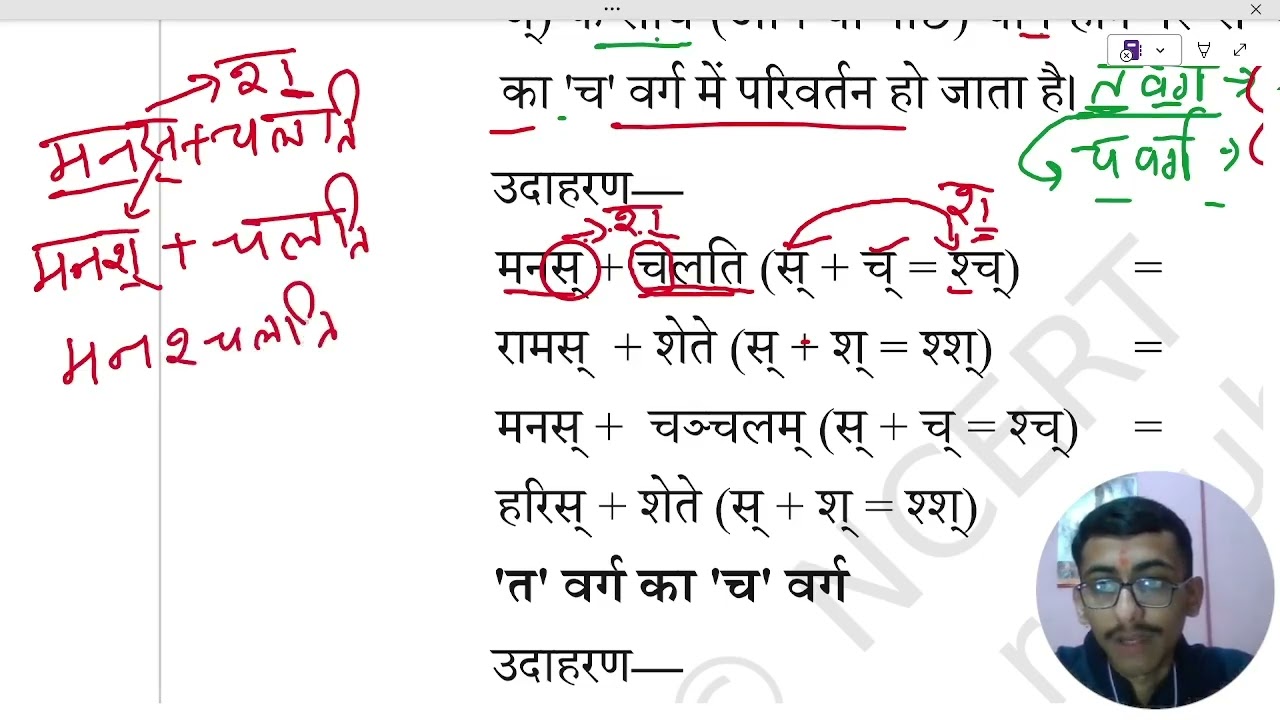 का 'च' वर्ग में परिवर्तन हो जाता है।
त वर्ग →
च वर्ग →
उदाहरण—
मनस् + चलति (स् + च् = श्च्) =
रामस् + शेते (स् + श् = श्श्) =
मनस् + चञ्चलम् (स् + च् = श्च्) =
हरिस् + शेते (स् + श् = श्श्)
'त' वर्ग का 'च' वर्ग
उदाहरण—
→ श
मनस् + चलति
मनश् + चलति
मनश्चलति
→ श
श
© NCERT